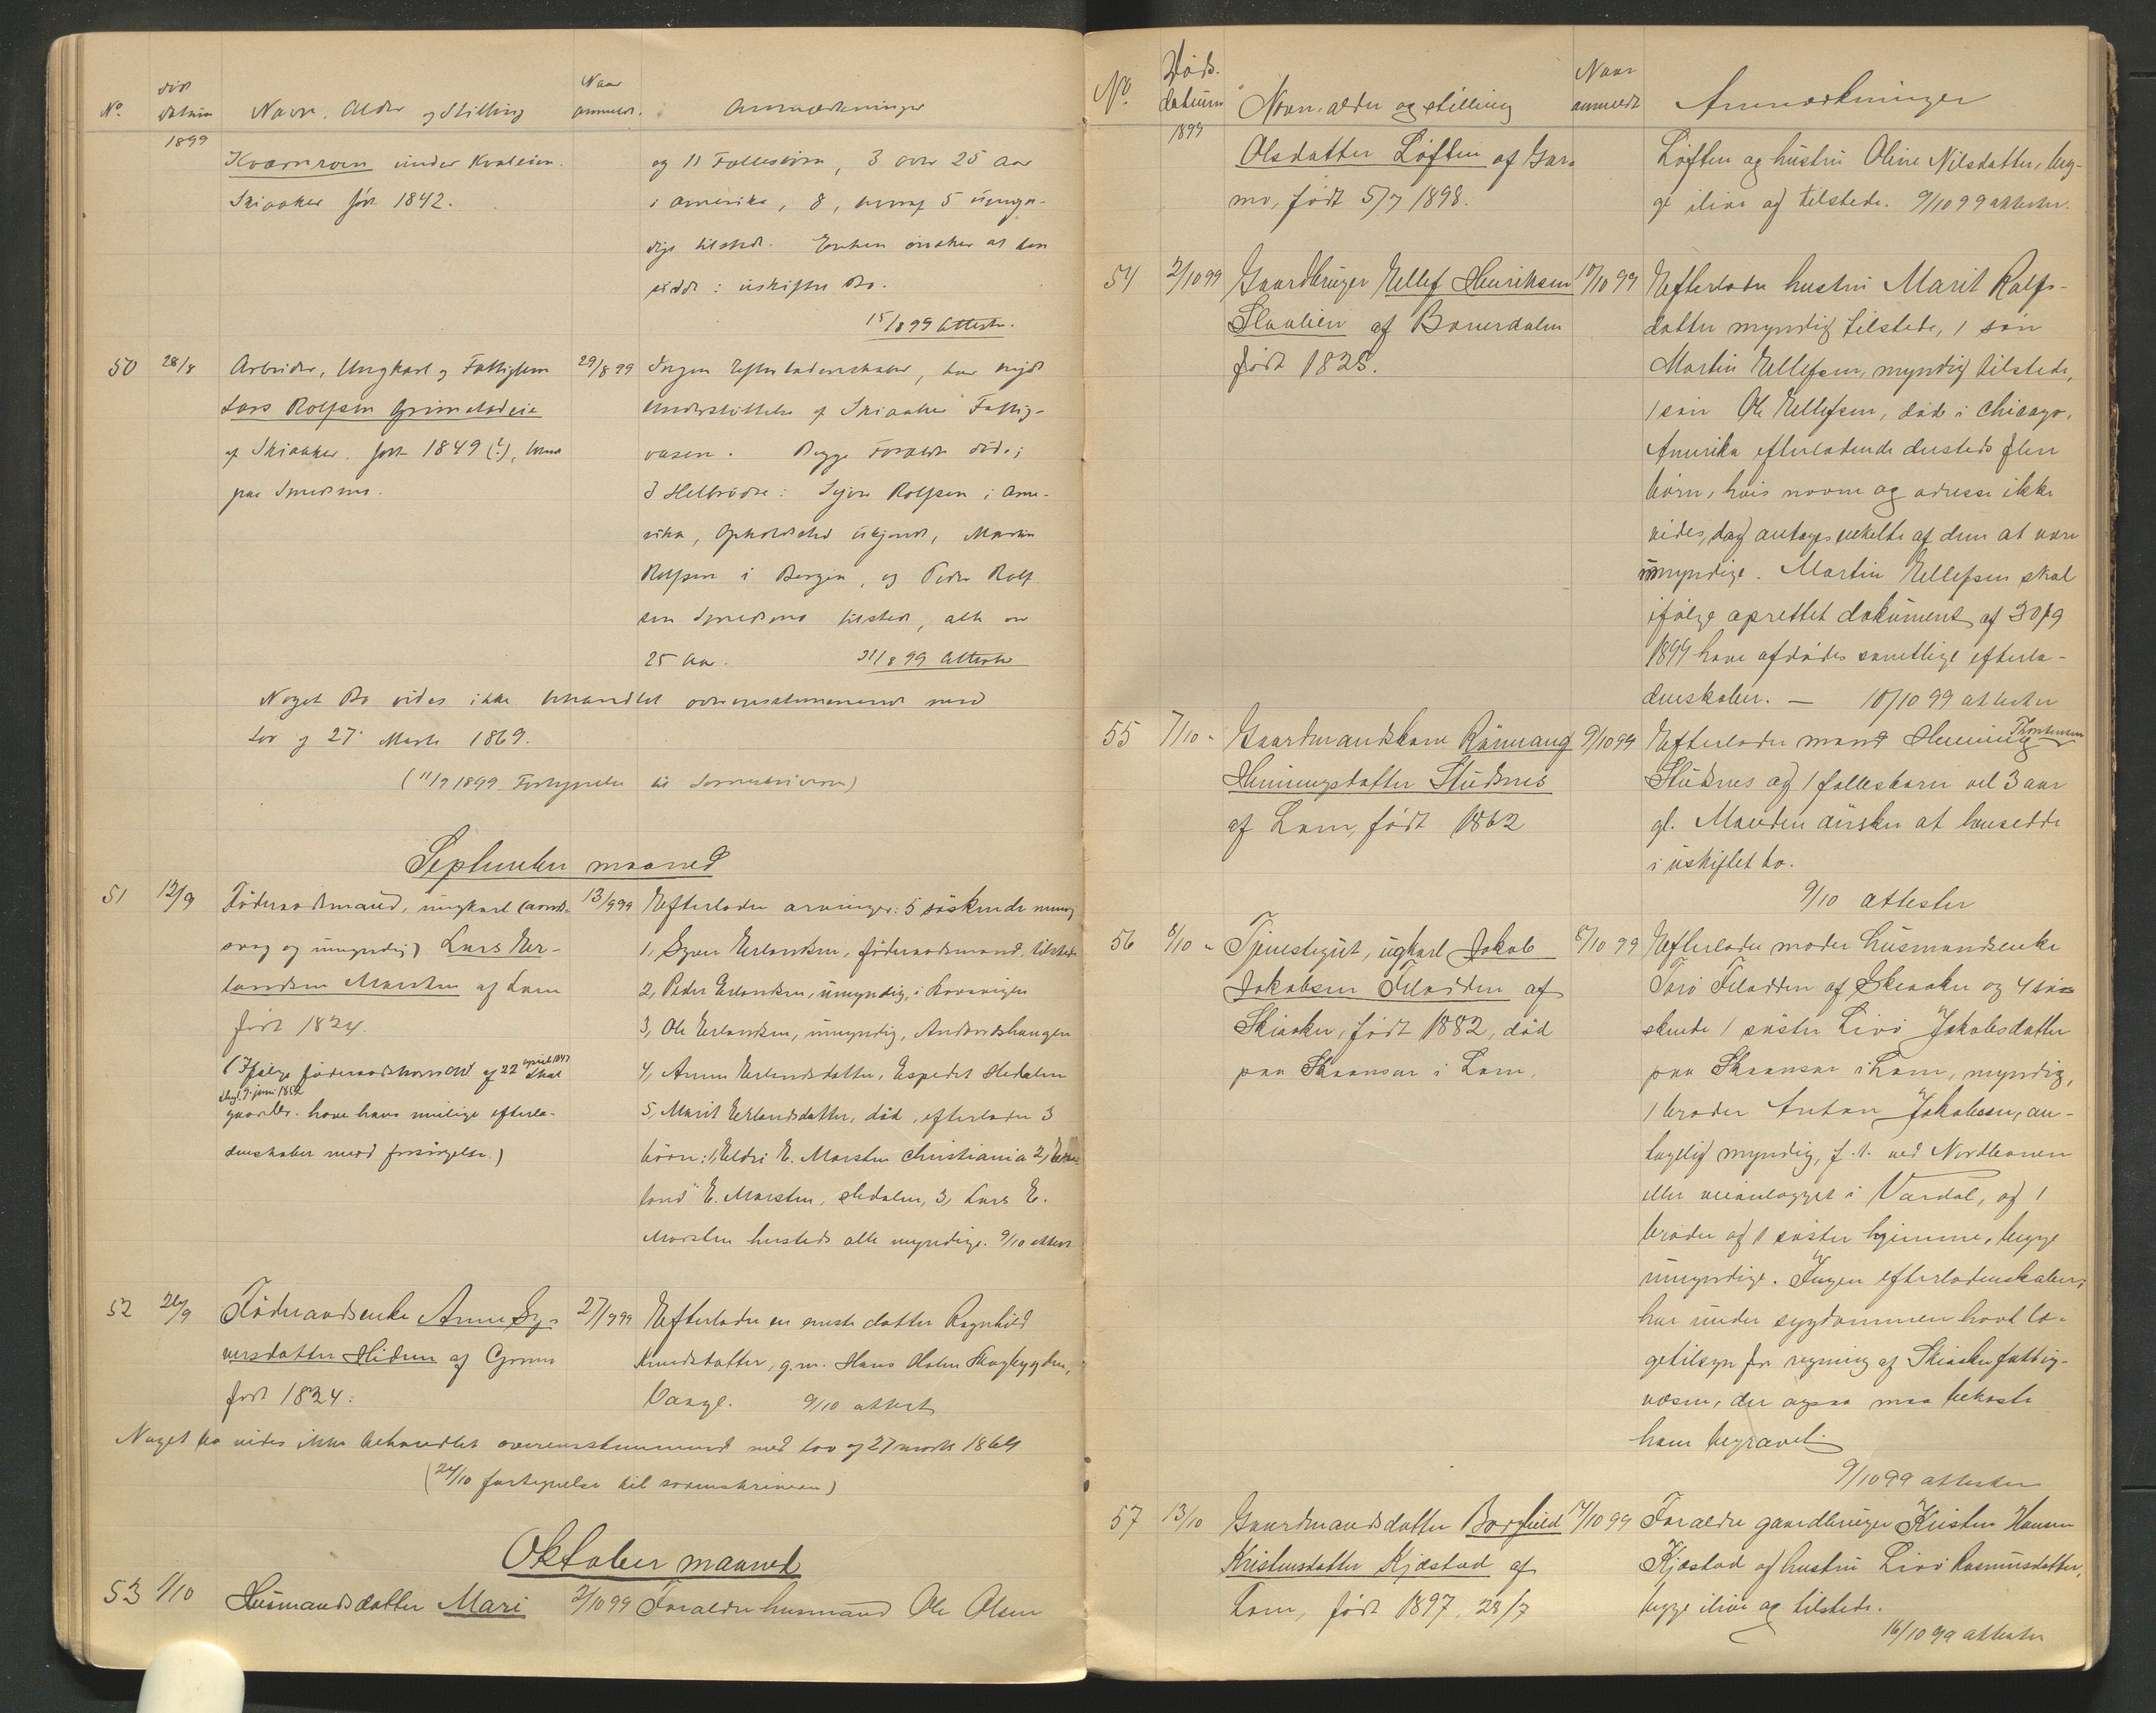 No. Døds datum Navn, Alder og Stilling Naar anmeldt. Anmærkninger
1899
Kværnroen under Kvaleien og 11 Fællesbørn, 3 over 25 Aar
Skiaaker født 1842. i Amerika, 8, hvoraf 5 umyn-
dige tilstede. Enken ønsker at hen
sidde i uskiftet Bo.
15/8 99 Attester.
50 28/8 Arbeider, Ungkarl og Fattiglem 29/8 99 Ingen Efterladenskaber, har nydt
Lars Rolfsen Grimstadeie Understøttelse af Skiaaker Fattig-
af Skiaaker. født 1849 (?), væsen. Begge Forældre døde;
paa Smedsmo. 3 Helbrødre: Syver Rolfsen i Ame-
rika, Opholdssted ukjendt, Martin
Rolfsen i Bergen, og Peder Rolf
sen Smedsmo tilstede, alle over
25 Aar. 31/8 99 Attester
Noget Bo vides ikke behandlet overensstemmende med
Lov af 27 Marts 1869.
(11/9 1899 Fortegnelse til Sorenskriveren)
September maaned
51 12/9 Føderaadsmand, ungkarl (aands- 13/9 99 Efterlader arvinger: 5 søskende
svag og umyndig) Lars Er- 1, Syver Erlandsen, føderaadsmand, tilstede
landsen Marstein af Lom 2, Peder Erlandsen, umyndig, i
født 1824. 3, Ole Erlandsen, umyndig,
(Ifølge føderaadskontrakt af 22 april 1847 skal 4, Anne Erlandsdatter, Espedet Hedalen
thgl. 7 juni 1852 5, Marit Erlandsdatter, død, efterlader 3
gaardbr. have hans mulige efterla- børn: 1, Eldri E. Marstein Christiania 2, Er-
denskaber mod forsørgelse.) land E. Marstein, Hedalen, 3, Lars E.
Marstein husteds alle myndige. 9/10 attest
52 26/9 Føderaadsenke Anne Sy- 27/9 99 Efterlader en eneste datter Ragnhild
versdatter Hidem af Garmo Knudsdatter, g.m. Hans Holen Skogbygden,
født 1824. Vaage. 9/10 attest
Noget bo vides ikke behandlet overensstemmende med lov af 27 marts 1869
(24/10 fortegnelse til sorenskriveren)
Oktober maaned
53 1/10 Husmandsdatter Mari 2/10 99 Forældre husmand Ole Olsen
No. Døds-datum Navn, alder og stilling Naar anmeldt Anmærkninger
1899
Olsdatter Løften af Gar- Løften og hustru Oline Nilsdatter, beg-
mo, født 5/7 1898. ge ilive og tilstede. 9/10 99 attester.
54 2/10 99 Gaardbruger Ellef Henriksen 10/10 99 Efterlader hustru Marit Rolfs-
Slaalien af Bøverdalen datter myndig tilstede, 1 søn
født 1825. Martin Ellefsen, myndig tilstede,
1 søn Ole Ellefsen, død i Chicago,
Amerika efterladende dersteds flere
børn, hvis navne og adresse ikke
vides, dog antages enkelte af dem at være
umyndige. Martin Ellefsen skal
ifølge oprettet dokument af 30/9
1899 have afdødes samtlige efterla-
denskaber. — 10/10 99 attester
55 7/10 - Gaardmandskone Rønnaug 9/10 99 Efterlader mand Henning Thorstensen
Henningsdatter Studsnes Studsnes og 1 fællesbarn vel 3 aar
af Lom, født 1862 gl. Manden ønsker at hensidde
i uskiftet bo.
9/10 attester
56 8/10 - Tjenestegut, ugkarl Jakob 8/10 99 Efterlader moder husmandsenke
Jakobsen Flaadden af Tore Flaadden af Skiaaker og 4 søs-
Skiaaker, født 1882, død skende 1 søster Livø Jakobsdatter
paa Skaansar i Lom. paa Skaansar i Lom, myndig,
1 broder Anton Jakobsen, an-
tagelig myndig, f. t. ved Nordbanen
eller veianlægget i Vardal, og 1
broder og 1 søster hjemme, begge
umyndige. Ingen efterladenskaber;
har under sygdommen havt læ-
getilsyn for regning af Skiaaker fattig-
væsen, der ogsaa maa bekoste
ham begravet.
9/10 99 attester
57 13/10 Gaardmandsdatter Borghild 14/10 99 Forældre gaardbruger Kristen Hansen
Kristensdatter Kjæstad af Kjæstad og hustru Livø Rasmusdatter,
Lom, født 1897, 28/7 begge ilive og tilstede.
16/10 99 attester